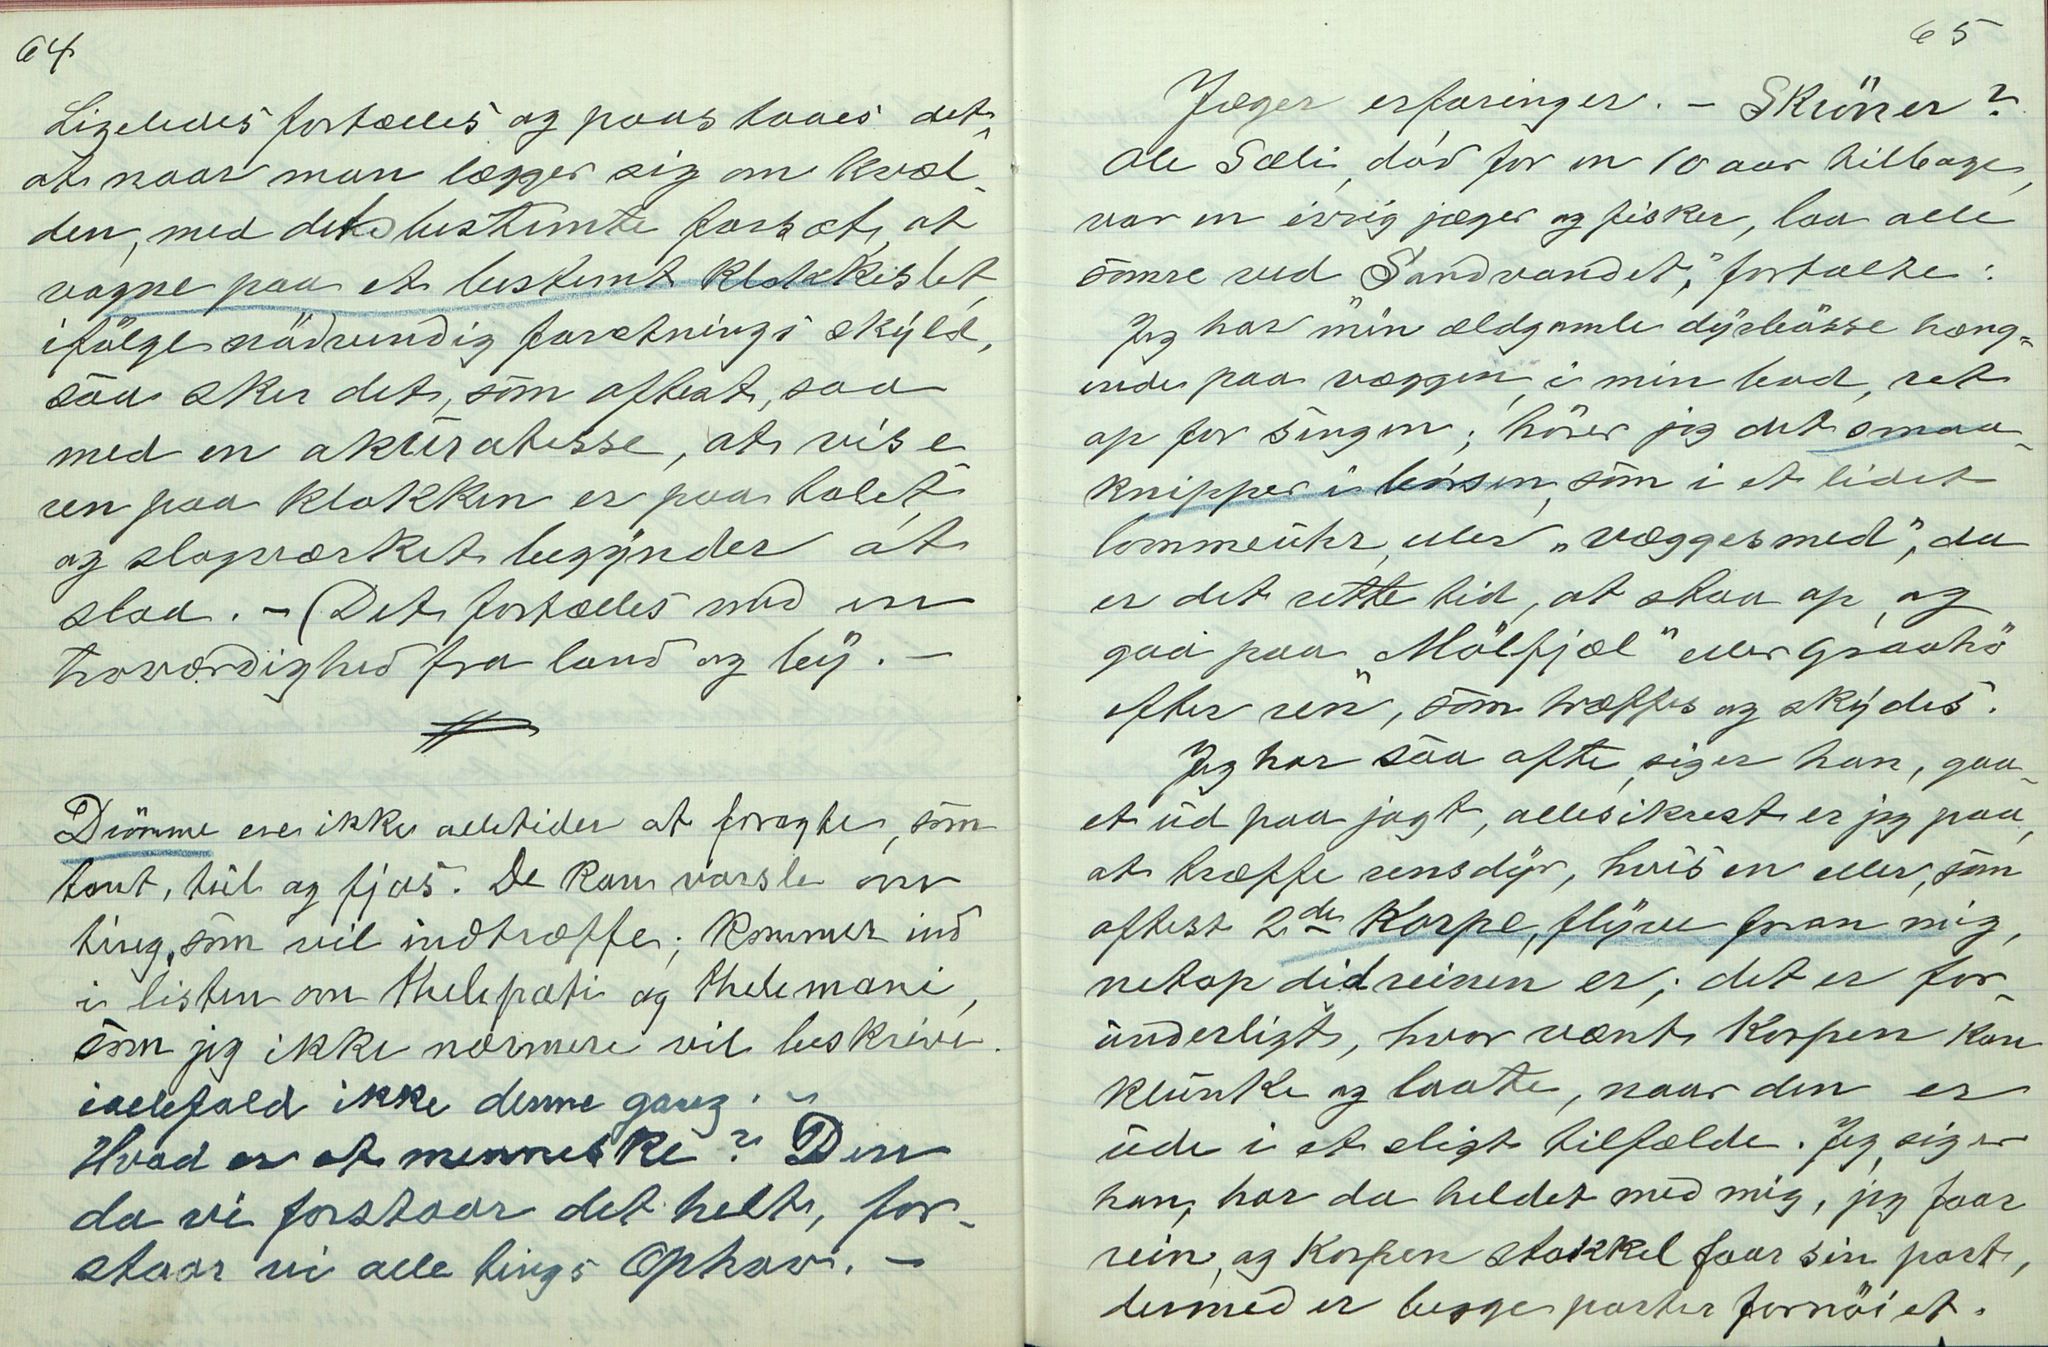 64
Ligeledes fortælles og paastaaes det,
at naar man lægger sig om kvæl-
den, med det bestemte forsæt, at
vagne paa et bestemt klokkeslet,
ifölge nödvendig forætnings skyld,
saa sker det, som oftest, saa
med en akuratesse, at vise
ren paa klokken er paa talet,
og slagværket begynder at
slaa. – (Det fortælles med en
troværdighed fra land og by. –
Drömme ere ikke alletider at foragte, som
tant, tüll og fjas. De kan varsle om
ting, som vil indtræffe; kommer ind
i listen om thelepati og thelemani,
som jeg ikke nærmere vil beskrive.
ialefald ikke denne gang. –
Hvad er et menneske? Den
da vi forstaar det helt, for-
staar vi alle tings Ophav. –
65
Jæger erfaringer. – Skröner?
Ole Sæli, död for en 10 aar tilbage,
var en ivrig jæger og fisker, laa alle
somre ved Sandvandet", fortalte:
Jeg har min ældgamle dyrbösse hæng-
ende paa væggen, i min bod, ret
op for sengen; hörer jeg det smaa-
knipper i börsen, som i et lidet
lommeuhr, eller „væggesmed", da
er det rette tid, at staa op, og
gaa paa „Mölfjæl" eller Graahö
efter ren, som træffes og skydes.
Jeg har saa ofte, siger han, gaa-
et ud paa jagt, allesikrest er jeg paa,
at træffe rensdyr, hvis en eller, som
oftest 2de Korpe, flyve foran mig,
netop did reinen er; det er for-
underligt, hvor vænt Korpen kan
klunke og laate, naar den er
ude i et sligt tilfælde. Jeg, siger
han, har da heldet med mig, jeg faar
rein, og Korpen stakkel faar sin part,
dermed er begge parter fornöiet.